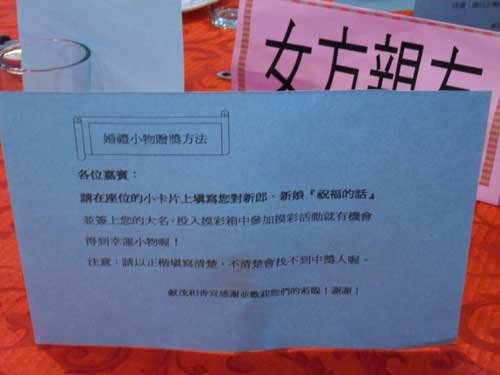 女方親友
婚禮小物贈獎方法
各位嘉賓：
請在座位的小卡片上填寫您對新郎、新娘『祝福的話』
並簽上您的大名，投入摸彩箱中參加摸彩活動就有機會
得到幸運小物喔！
注意：請以正楷填寫清楚、不清楚會找不到中獎人喔。
獻茂和秀宜感謝並歡迎您們的蒞臨！謝謝！